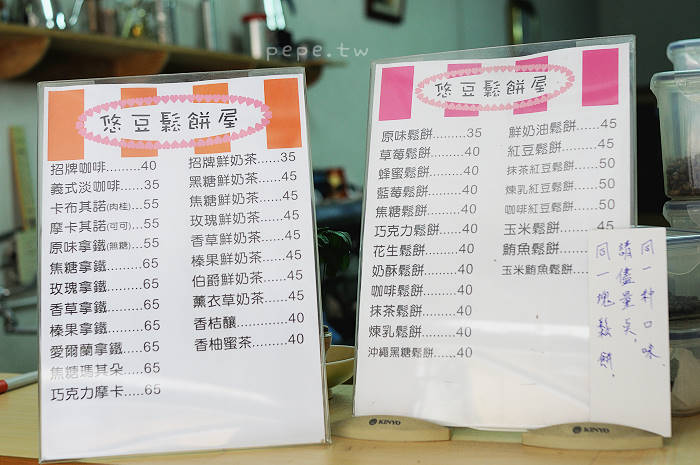 pepe.tw
悠豆鬆餅屋
招牌咖啡.........40
義式淡咖啡......35
卡布其諾(肉桂)...55
摩卡其諾(可可)...55
原味拿鐵(無糖)...55
焦糖拿鐵.........65
玫瑰拿鐵.........65
香草拿鐵.........65
榛果拿鐵.........65
愛爾蘭拿鐵......65
焦糖瑪其朵......65
巧克力摩卡......65
招牌鮮奶茶......35
黑糖鮮奶茶......45
焦糖鮮奶茶......45
玫瑰鮮奶茶......45
香草鮮奶茶......45
榛果鮮奶茶......45
伯爵鮮奶茶......45
薰衣草奶茶......45
香桔釀............40
香柚蜜茶.........40
悠豆鬆餅屋
原味鬆餅.........35
草莓鬆餅.........40
蜂蜜鬆餅.........40
藍莓鬆餅.........40
焦糖鬆餅.........40
巧克力鬆餅......40
花生鬆餅.........40
奶酥鬆餅.........40
咖啡鬆餅.........40
抹茶鬆餅.........40
煉乳鬆餅.........40
沖繩黑糖鬆餅......40
鮮奶油鬆餅......45
紅豆鬆餅.........45
抹茶紅豆鬆餅......50
煉乳紅豆鬆餅......50
咖啡紅豆鬆餅......50
玉米鬆餅.........45
鮪魚鬆餅
玉米鮪魚鬆餅
同一种口味
請儘量点
同一塊鬆餅.
KINYO
KINYO